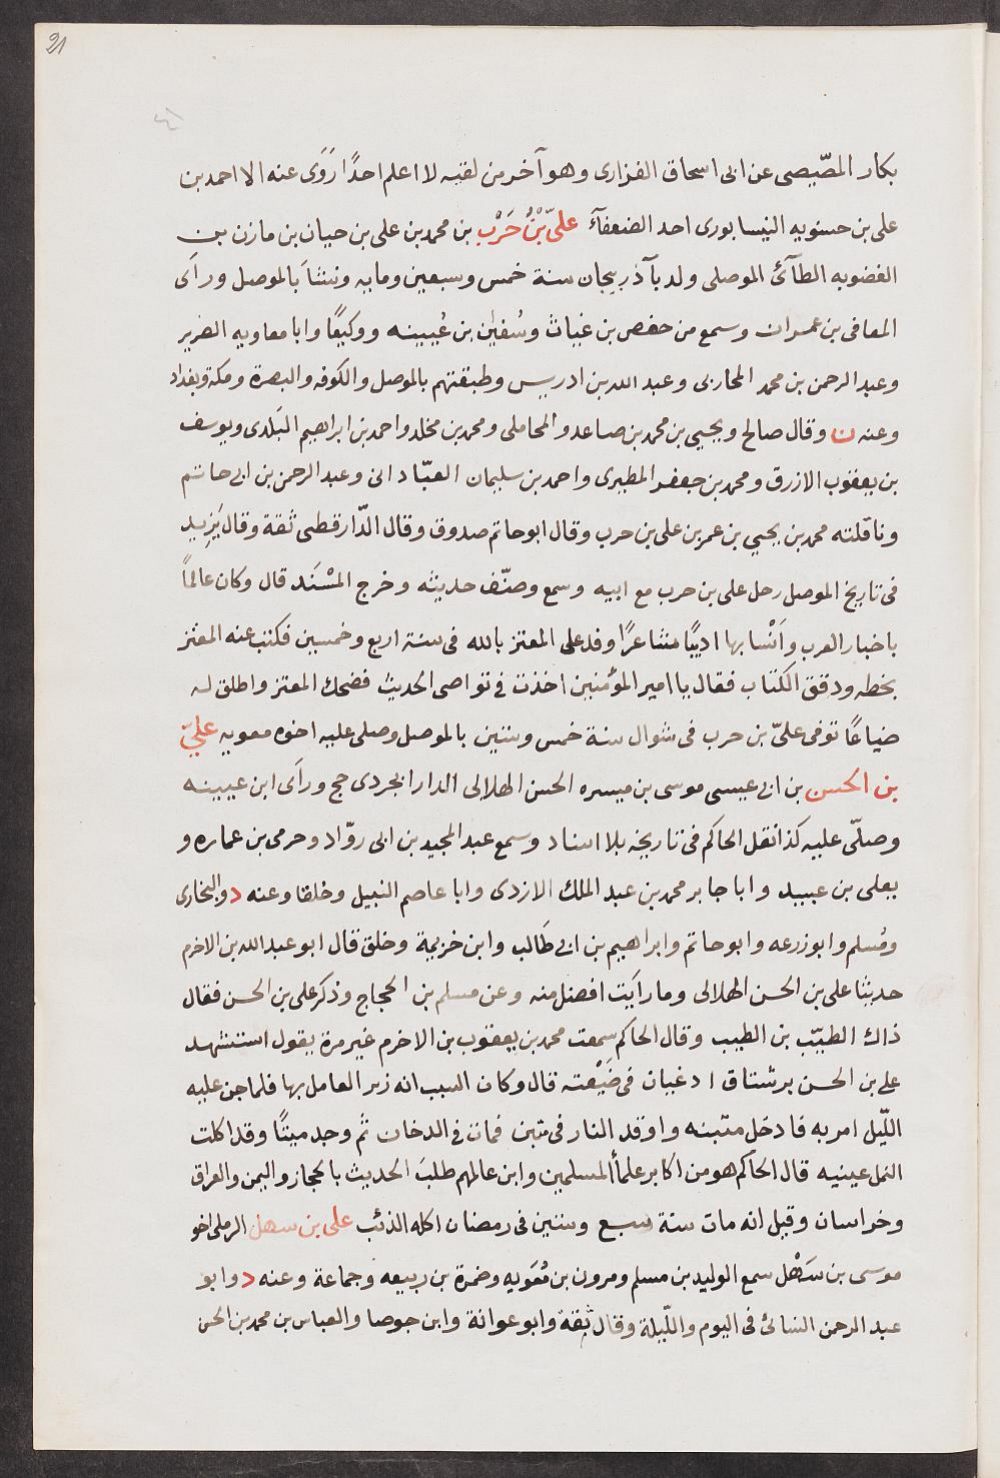 21
٤١
بكار المصّيصى عن ابى اسحاق الفزارى وهو آخر من لقيه لا اعلم احدًا رَوَى عنه الا احمد بن
على بن حسنويه النيسابورى احد الضعفآءَ علىّ بْنُ حَرْب بن محمد بن على بن حيان بن مازن بن
الغضوبه الطآئىّ الموصلى ولد بآذربيجان سنة خمس وسبعين ومايه ونشاَ بالموصل وراَى
المعافى بن عمران وسمع من حفص بن غياث وسُفيٰن بن عُيينه ووكيعًا وابا معاويه الضرير
وعبد الرحمن بن محمد المحاربى وعبد الله بن ادريس وطبقتهم بالموصل والكوفه والبصرة ومكة وبغداد
وعنه ن وقال صالح ويحيى بن محمد بن صاعد والمحاملى ومحمد بن مخلد واحمد بن ابراهيم البَلدى ويوسف
بن يعقوب الازرق ومحمد بن جعفر المطيرى واحمد بن سليمان العبّادانى وعبد الرحمن بن ابى حاتم
ونافلته محمد بن يحيى بن عمر بن على بن حرب وقال ابو حاتم صدوق وقال الدّارقطنى ثقة وقال يَزِيد
فى تاريخ الموصل رحل على بن حرب مع ابيه وسمع وصنّف حديثه وخرج المسْنَد قال وكان عالماً
باخبار العرب واَنْسابها اديبًا شاعرًا وفد على المعتز بالله فى سنة اربع وخمسين فكتب عنه المعتز
بخطه ودقق الكتاب فقال يا امير المؤمنين اخذت فى تواصى الحديث فضحك المعتز واطلق له
ضياعًا توفى علىّ بن حرب فى شوال سنة خمس وستين بالموصل وصلى عليه اخوه معويه علىّ
بن الحسن بن ابى عيسى موسى بن ميسره الحسن الهلالى الدارابجردى حج وراَى ابن عيينه
وصلّى عليه كذا نقل الحاكم فى تاريخه بلا اسناد وسمع عبد المجيد بن ابى روّاد وحرمى بن عماره و
يعلى بن عبيد وابا جابر محمد بن عبد الملك الازدى وابا عاصم النبيل وخلقا وعنه د والبخارى
ومُسلم وابو زرعه وابو حاتم وابراهيم بن ابى طَالب وابن خزيمة وخلق قال ابو عبد الله بن الاخرم
حدثنا على بن الحسن الهلالى وما راَيت افضل منه وعن مسلم بن الحجاج وذكر على بن الحسن فقال
ذاك الطيّب بن الطيب وقال الحاكم سمعت محمد بن يعقوب بن الاخرم غير مرة يقول استشهد
على بن الحسن برستاق ادغيان فى ضَيْعته قال وكان السبب انه زبر العامل بها فلما جن عليه
اللّيل امر به فادخل متبنه واوقد النار فى تبن فمات فى الدخان ثم وجد ميتًا وقد اكلت
النمل عينيه قال الحاكم هو من اكابر علمآ المسلمين وابن عالمهم طلبَ الحديث بالحجاز واليمن والعراق
وخراسان وقيل انه مات سنة سبع وستين فى رمضان اكله الذئب على بن سهل الرملى اخو
موسى بن سَهْل سمع الوليد بن مسلم ومرون بن مُعَويه وضمرة بن ربيعه وجماعة وعنه د وابو
عبد الرحمن النسائى فى اليوم واللّيلة وقال ثقة وابو عوانة وابن جوصا والعباس بن محمد بن الحسن